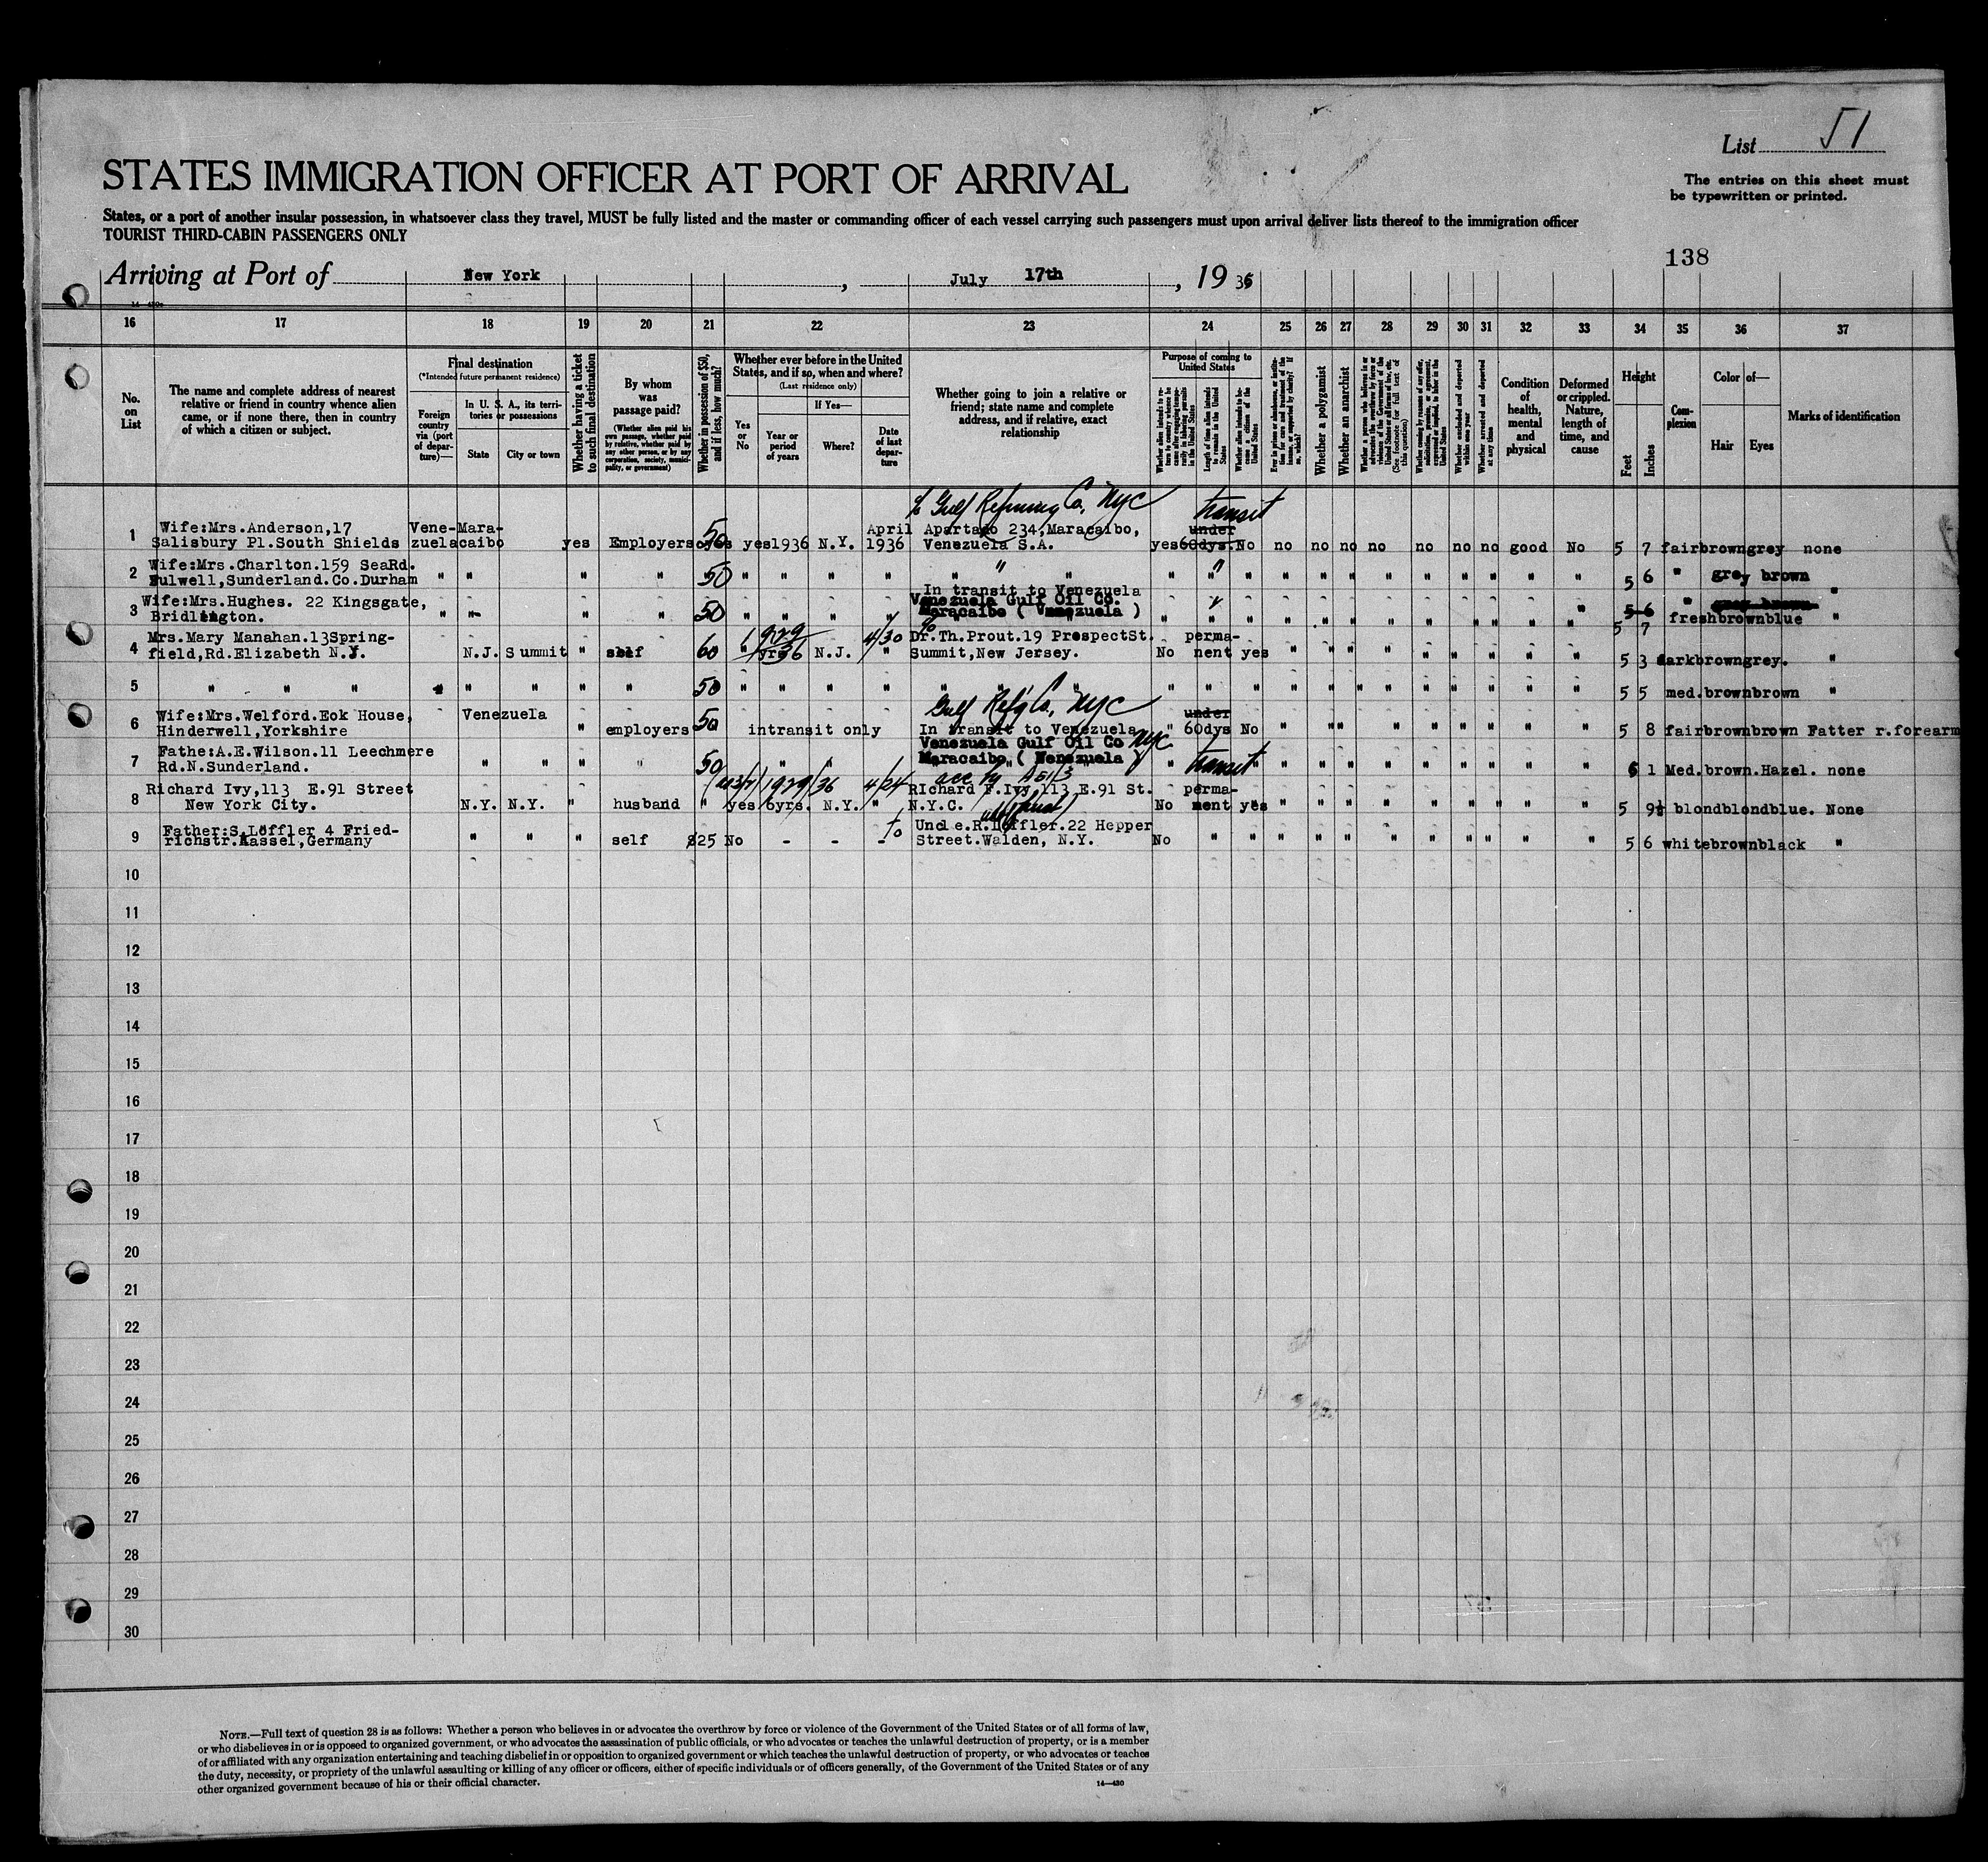 List 51
STATES IMMIGRATION OFFICER AT PORT OF ARRIVAL
The entries on this sheet must
be typewritten or printed.
States, or a port of another insular possession, in whatsoever class they travel, MUST be fully listed and the master or commanding officer of each vessel carrying such passengers must upon arrival deliver lists thereof to the immigration officer
TOURIST THIRD-CABIN PASSENGERS ONLY
138
Arriving at Port of New York, July 17th, 1936
16 17 18 19 20 21 22 23 24 25 26 27 28 29 30 31 32 33 34 35 36 37
No. on List
The name and complete address of nearest relative or friend in country whence alien came, or if none there, then in country of which a citizen or subject.
Final destination
(*Intended future permanent residence)
Foreign country via (port of departure)—
In U. S. A., its territories or possessions
State
City or town
Whether having a ticket to such final destination
By whom was passage paid?
(Whether alien paid his own passage, whether paid by relative, whether paid by any other person, or by any corporation, society, municipality, or government)
Whether in possession of $50, and if less, how much?
Whether ever before in the United States, and if so, when and where?
(Last residence only)
Yes or No
If Yes—
Year or period of years
Where?
Date of last departure
Whether going to join a relative or friend; state name and complete address, and if relative, exact relationship
Purpose of coming to United States
Whether a polygamist
Whether an anarchist
Condition of health, mental and physical
Deformed or crippled. Nature, length of time, and cause
Height
Feet
Inches
Complexion
Color of—
Hair
Eyes
Marks of identification
c/o Gulf Refining Co. NYC transit
1 Wife:Mrs.Anderson,17 Vene- Mara- April Apartado 234,Maracaibo, under
Salisbury Pl.South Shields zuela caibo yes Employers 50 yes 1936 N.Y. 1936 Venezuela S.A. yes 60dys. No no no no no no no no good No 5 7 fair brown grey none
2 Wife:Mrs.Charlton.159 SeaRd.
Fulwell,Sunderland.Co.Durham " " " " 50 " " " " " " " " " " " " " " " " " " " " 5 6 " grey brown "
In transit to Venezuela
3 Wife:Mrs.Hughes. 22 Kingsgate, Venezuela Gulf Oil Co.
Bridlington. " " " " 50 " " " " Maracaibo ( Venezuela ) " " " " " " " " " " " " 5 6 " fresh brown blue "
5 7
4 Mrs.Mary Manahan.13Spring- 1929 4/30 Dr.Th.Prout.19 ProspectSt. perma-
field,Rd.Elizabeth N.J. N.J. Summit " self 60 " yrs 36 N.J. " Summit,New Jersey. No nent yes " " " " " " " " " 5 3 dark brown grey. "
5 " " " " " " " " 50 " " " " " " " " " " " " " " " " " " " 5 5 med. brown brown "
Gulf Refg Co., NYC
6 Wife:Mrs.Welford.Eok House, Venezuela under
Hinderwell,Yorkshire " employers 50 intransit only In transit to Venezuela " 60dys No " " " " " " " " " 5 8 fair brown brown Fatter r.forearm
Venezuela Gulf Oil Co NYC
7 Fathe:A.E.Wilson.11 Leechmere Maracaibo ( Venezuela ) transit
Rd.N.Sunderland. " " " " 50 " " " " " " " " " " " " 6 1 Med. brown. Hazel. none
8 Richard Ivy,113 E.91 Street 1929/36 4/24 RIchard F.Ivy,113 E.91 St. perma-
New York City. N.Y. N.Y. " husband " yes 6yrs. N.Y. " N.Y.C. (husband) No nent yes " " " " " " " " " 5 9½ blond blond blue. None
9 Father:S.Löffler 4 Fried- to Uncle.R.Löffler.22 Hepper
richstr.Kassel,Germany " " " self $25 No - - - Street.Walden, N.Y. No " " " " " " " " " " " 5 6 white brown black "
10
11
12
13
14
15
16
17
18
19
20
21
22
23
24
25
26
27
28
29
30
NOTE.—Full text of question 28 is as follows: Whether a person who believes in or advocates the overthrow by force or violence of the Government of the United States or of all forms of law,
or who disbelieves in or is opposed to organized government, or who advocates the assassination of public officials, or who advocates or teaches the unlawful destruction of property, or is a member
of or affiliated with any organization entertaining and teaching disbelief in or opposition to organized government or which teaches the unlawful destruction of property, or who advocates or teaches
the duty, necessity, or propriety of the unlawful assaulting or killing of any officer or officers, either of specific individuals or of officers generally, of the Government of the United States or of any
other organized government because of his or their official character.
14—430